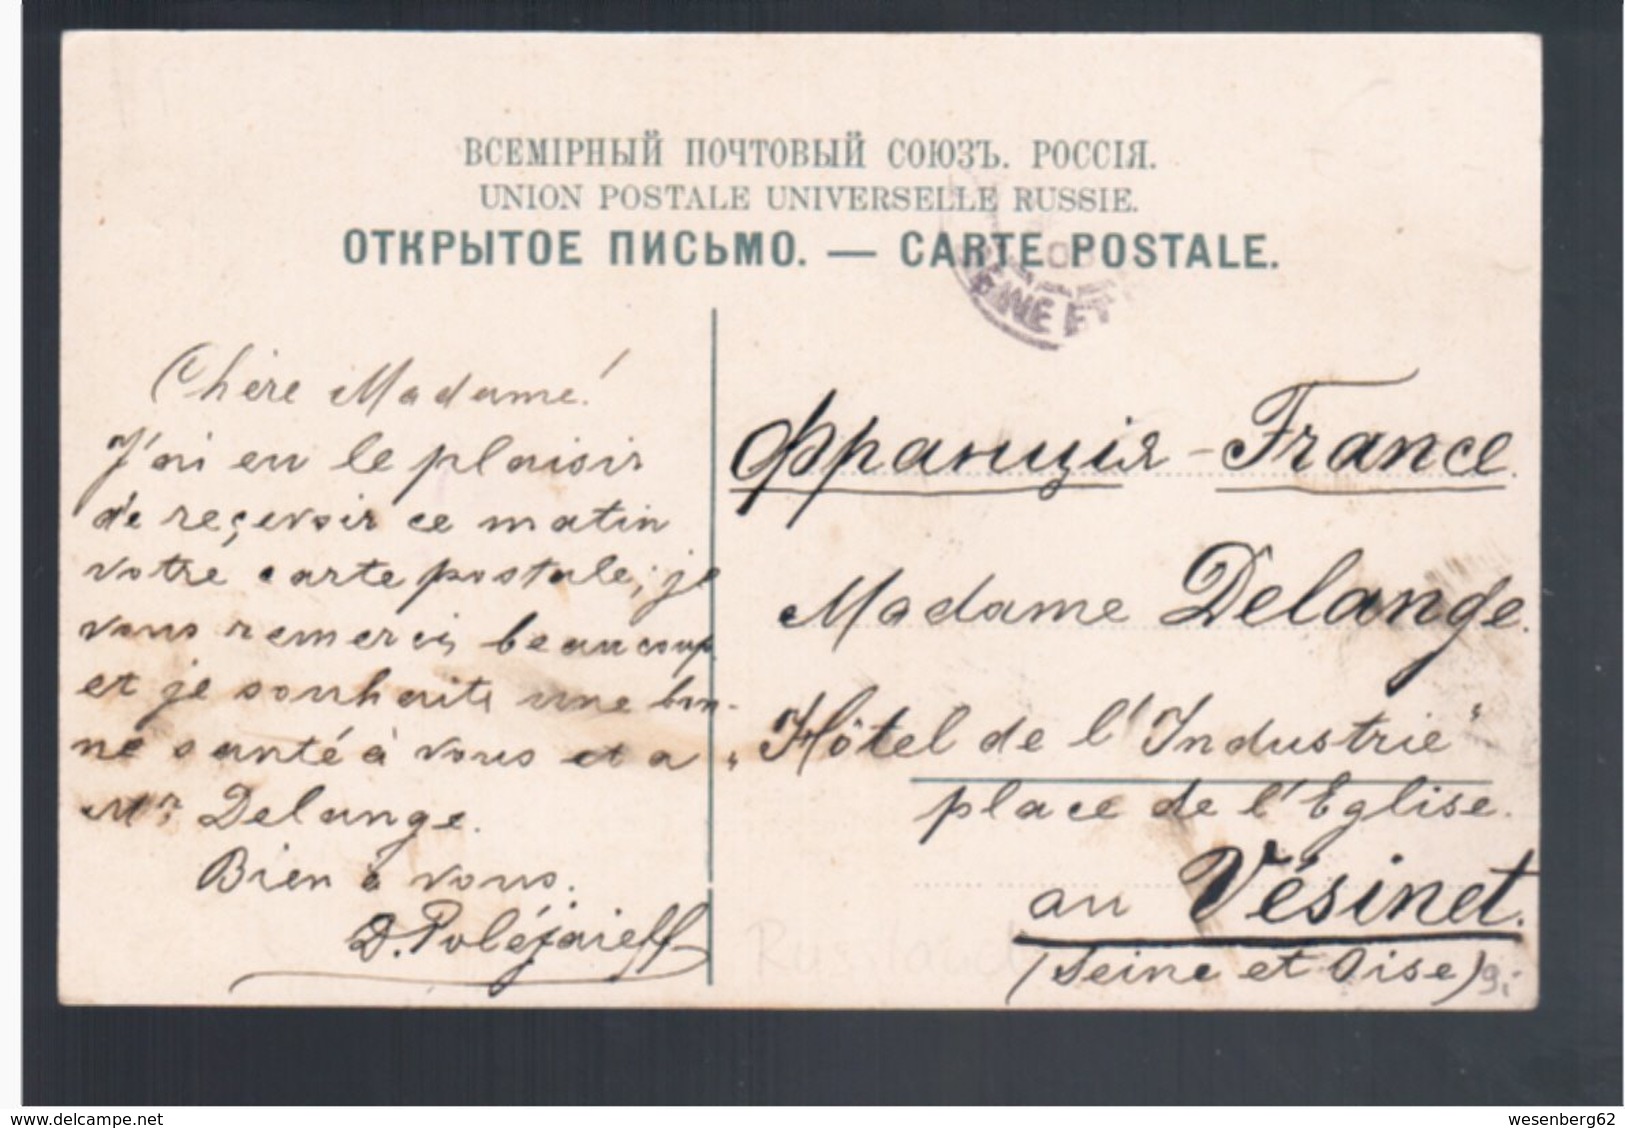 ВСЕМІРНЫЙ ПОЧТОВЫЙ СОЮЗЪ. РОССІЯ.
UNION POSTALE UNIVERSELLE RUSSIE.
ОТКРЫТОЕ ПИСЬМО. — CARTE POSTALE.
SEINE ET
Chère Madame!
J'ai eu le plaisir
de reçevoir ce matin
votre carte postale, je
vous remerci, beaucoup
et je souhaite une bon-
ne santé à vous et a
Mr Delange.
Bien à vous.
D. Poléjaieff
Франція - France.
Madame Delange.
"Hôtel de l'Industrie"
place de l'Eglise.
au Vésinet.
(Seine et Oise)
Russland
9.-
www.delcampe.net
wesenberg62